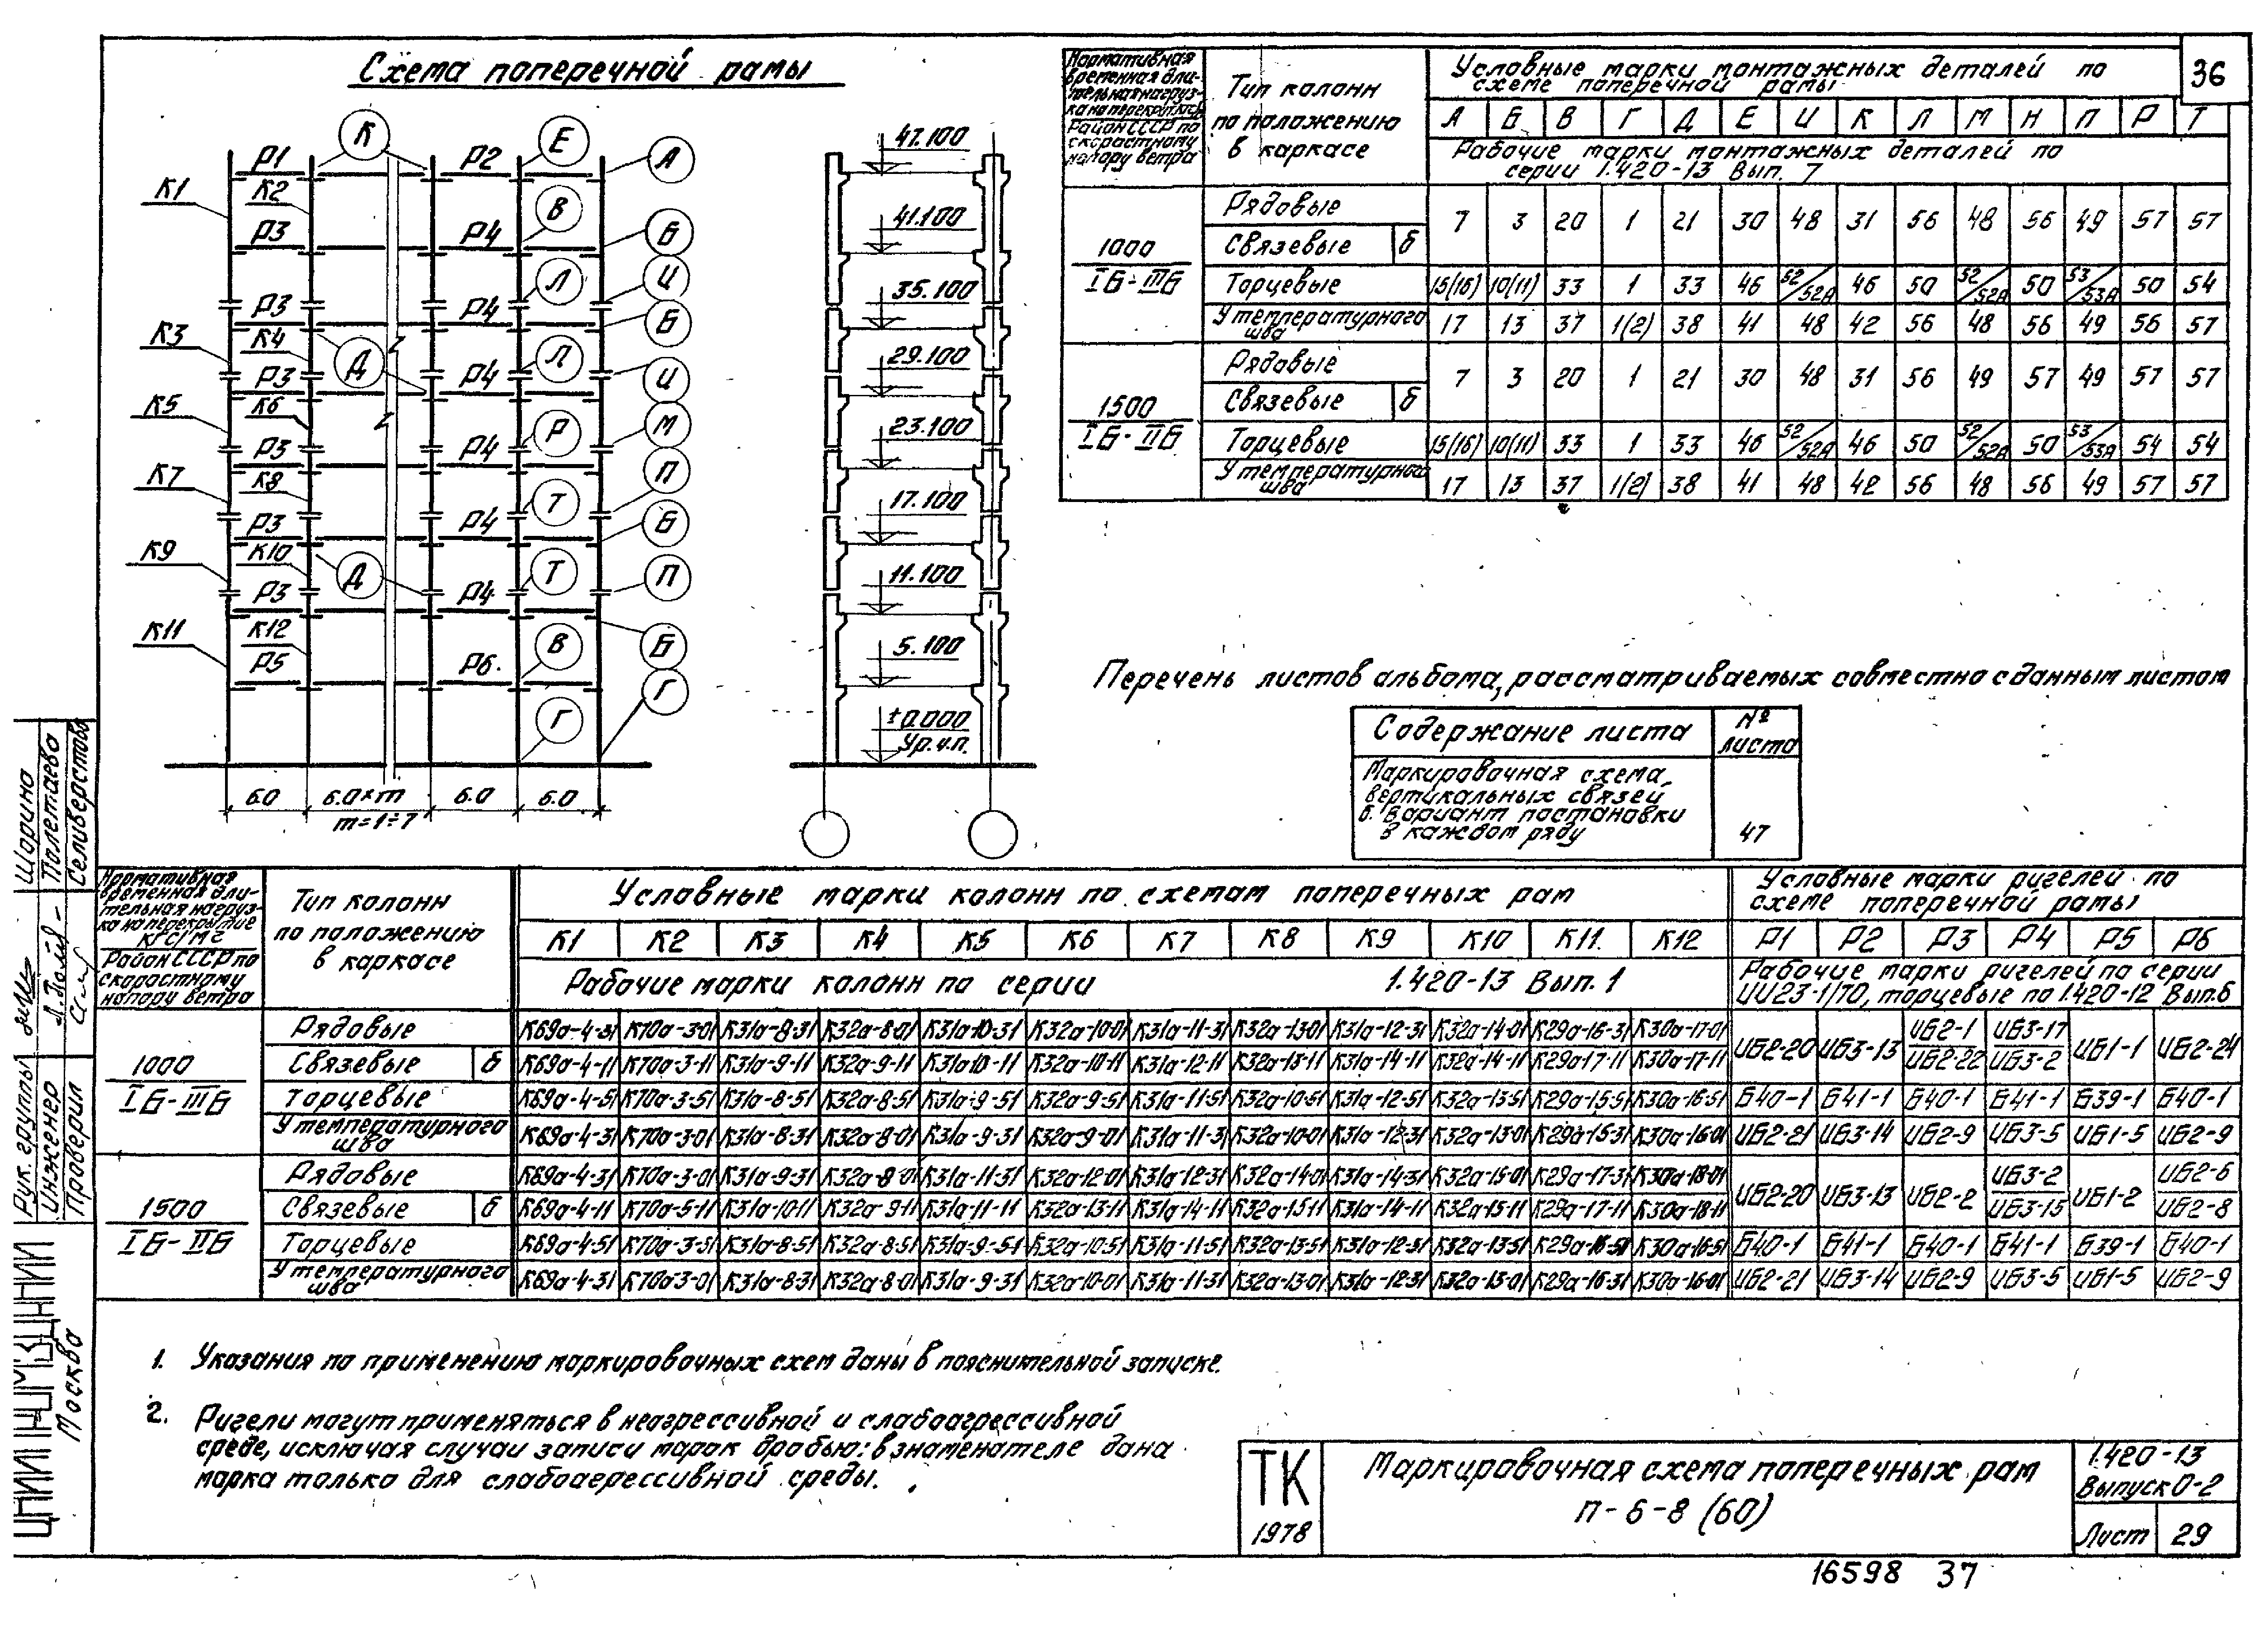 36
Схема поперечной рамы
К Е А
Р1 Р2
К1 К2
В
Р3 Р4 Б
Л И
Р3 Р4 Б
К3 К4 Д Л
Р3 Р4 И
К5 К6 Р М
Р3 Р4 П
К7 К8 Т
Р3 Р4 Б
К9 К10 Д Т П
Р3 Р4
К11 К12 В Б
Р5 Р6 Г
Г
6.0 6.0×m 6.0 6.0
m=1÷7
47.100
41.100
35.100
29.100
23.100
17.100
11.100
5.100
±0.000
Ур.ч.п.
Нормативная временная длительная нагрузка на перекрытие
Район СССР по скоростному напору ветра
Тип колонн по положению в каркасе
Условные марки монтажных деталей по схеме поперечной рамы
А Б В Г Д Е И К Л М Н П Р Т
Рабочие марки монтажных деталей по серии 1.420-13 Вып. 7
1000 IБ-IIIБ
Рядовые 7 3 20 1 21 30 48 31 56 48 56 49 57 57
Связевые б
Торцевые 15(16) 10(11) 33 1 33 46 52/52А 46 50 52/52А 50 53/53А 50 54
У температурного шва 17 13 37 1(2) 38 41 48 42 56 48 56 49 56 57
1500 IБ-IIБ
Рядовые 7 3 20 1 21 30 48 31 56 49 57 49 57 57
Связевые б
Торцевые 15(16) 10(11) 33 1 33 46 52/52А 46 50 52/52А 50 53/53А 54 54
У температурного шва 17 13 37 1(2) 38 41 48 42 56 48 56 49 57 57
Перечень листов альбома, рассматриваемых совместно с данным листом
Содержание листа № листа
Маркировочная схема
вертикальных связей
б. Вариант постановки
в каждом ряду 47
Нормативная временная длительная нагрузка на перекрытие кгс/м2
Район СССР по скоростному напору ветра
Тип колонн по положению в каркасе
Условные марки колонн по схемам поперечных рам
Условные марки ригелей по схеме поперечной рамы
К1 К2 К3 К4 К5 К6 К7 К8 К9 К10 К11 К12 Р1 Р2 Р3 Р4 Р5 Р6
Рабочие марки колонн по серии 1.420-13 Вып. 1
Рабочие марки ригелей по серии ИИ23-1/70, торцевые по 1.420-12 Вып.6
1000 IБ-IIIБ
Рядовые К69а-4-31 К70а-3-01 К31а-8-31 К32а-8-01 К31а-10-31 К32а-10-01 К31а-11-31 К32а-13-01 К31а-12-31 К32а-14-01 К29а-16-31 К30а-17-01 ИБ2-20 ИБ3-13 ИБ2-1/ИБ2-22 ИБ3-17/ИБ3-2 ИБ1-1 ИБ2-24
Связевые б К69а-4-11 К70а-3-11 К31а-9-11 К32а-9-11 К31а-10-11 К32а-10-11 К31а-12-11 К32а-13-11 К31а-14-11 К32а-14-11 К29а-17-11 К30а-17-11
Торцевые К69а-4-51 К70а-3-51 К31а-8-51 К32а-8-51 К31а-9-51 К32а-9-51 К31а-11-51 К32а-10-51 К31а-12-51 К32а-13-51 К29а-15-51 К30а-16-51 Б40-1 Б41-1 Б40-1 Б41-1 Б39-1 Б40-1
У температурного шва К69а-4-31 К70а-3-01 К31а-8-31 К32а-8-01 К31а-9-31 К32а-9-01 К31а-11-31 К32а-10-01 К31а-12-31 К32а-13-01 К29а-15-31 К30а-16-01 ИБ2-21 ИБ3-14 ИБ2-9 ИБ3-5 ИБ1-5 ИБ2-9
1500 IБ-IIБ
Рядовые К69а-4-31 К70а-3-01 К31а-9-31 К32а-8-01 К31а-11-31 К32а-12-01 К31а-12-31 К32а-14-01 К31а-14-31 К32а-15-01 К29а-17-31 К30а-18-01 ИБ2-20 ИБ3-13 ИБ2-2 ИБ3-2/ИБ3-15 ИБ1-2 ИБ2-6/ИБ2-8
Связевые б К69а-4-11 К70а-5-11 К31а-10-11 К32а-9-11 К31а-11-11 К32а-13-11 К31а-14-11 К32а-15-11 К31а-14-11 К32а-15-11 К29а-17-11 К30а-18-11
Торцевые К69а-4-51 К70а-3-51 К31а-8-51 К32а-8-51 К31а-9-51 К32а-10-51 К31а-11-51 К32а-13-51 К31а-12-51 К32а-13-51 К29а-16-51 К30а-16-51 Б40-1 Б41-1 Б40-1 Б41-1 Б39-1 Б40-1
У температурного шва К69а-4-31 К70а-3-01 К31а-8-31 К32а-8-01 К31а-9-31 К32а-10-01 К31а-11-31 К32а-13-01 К31а-12-31 К32а-13-01 К29а-16-31 К30а-16-01 ИБ2-21 ИБ3-14 ИБ2-9 ИБ3-5 ИБ1-5 ИБ2-9
1. Указания по применению маркировочных схем даны в пояснительной записке.
2. Ригели могут применяться в неагрессивной и слабоагрессивной
среде, исключая случаи записи марок дробью: в знаменателе дана
марка только для слабоагрессивной среды.
ТК
1978
Маркировочная схема поперечных рам
П-6-8 (60)
1.420-13
Выпуск 0-2
Лист 29
16598 37
Рук. группы Шарина
Инженер Полетаева
Проверил Селиверстова
Москва